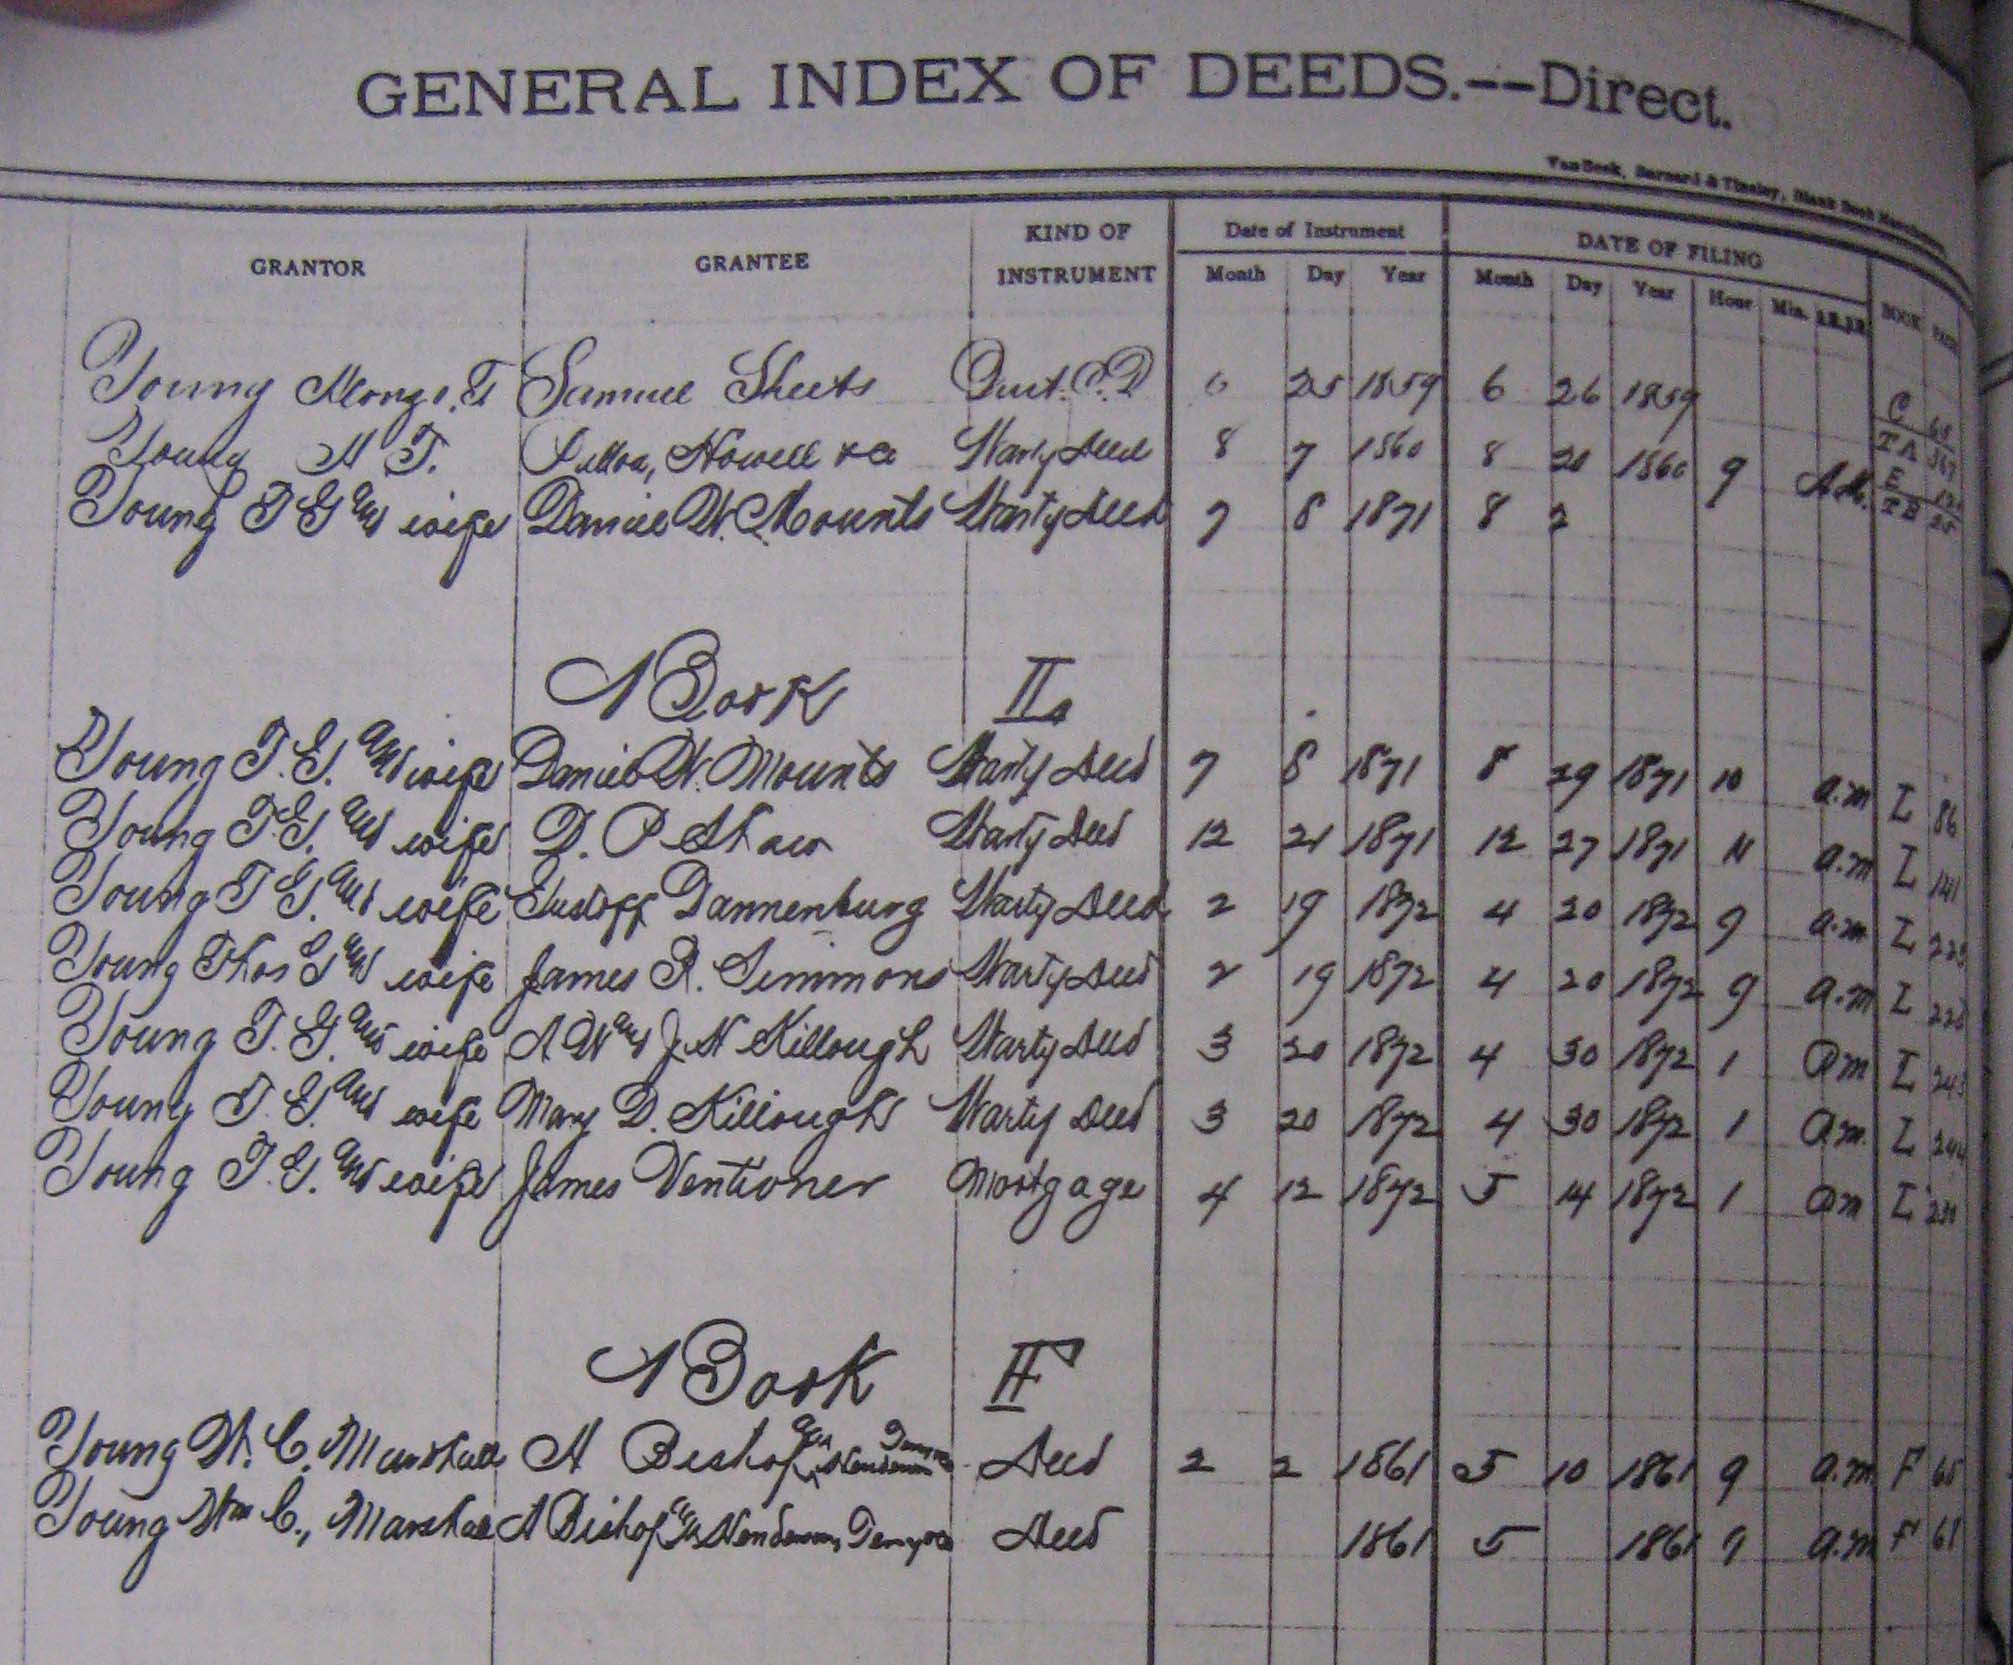 GENERAL INDEX OF DEEDS.--Direct.
Van Beek, Barnard & Tinsley, Blank Book
GRANTOR GRANTEE KIND OF INSTRUMENT Date of Instrument Month Day Year DATE OF FILING Month Day Year Hour Min. BOOK PAGE
Young Alonzo. T Samuel Sheets Quit. C. D 6 25 1859 6 26 1859 C
Young A T. Howell & Co Warty Deed 8 7 1860 8 20 1860 9 A.M. TA
Young T G and wife Daniel W. Mounts Warty Deed 7 8 1871 8 2 E TB 25
A Book II
Young T. G. and wife Daniel W. Mounts Warty Deed 7 8 1871 8 29 1871 10 a.m I 86
Young T. G. and wife D. P Shaw Warty Deed 12 21 1871 12 27 1871 11 a.m I 141
Young T G. and wife Gustoff Dannenburg Warty Deed 2 19 1872 4 20 1872 9 a.m I
Young Thos G and wife James R. Simmons Warty Deed 2 19 1872 4 20 1872 9 a.m I
Young T. G. and wife A W and J. H Killough Warty Deed 3 20 1872 4 30 1872 1 Pm I 243
Young T. G. and wife Mary D. Killough Warty Deed 3 20 1872 4 30 1872 1 I 244
Young T. G. and wife James Ventioner Mortgage 4 12 1872 5 14 1872 1 Pm I
A Book F
Young W. C. Marshall A Bishop Henderson Deed 2 2 1861 5 10 1861 9 a.m F 65
Young Wm C., Marshall A Bishop Henderson, Deed 1861 5 1861 9 a.m F 61